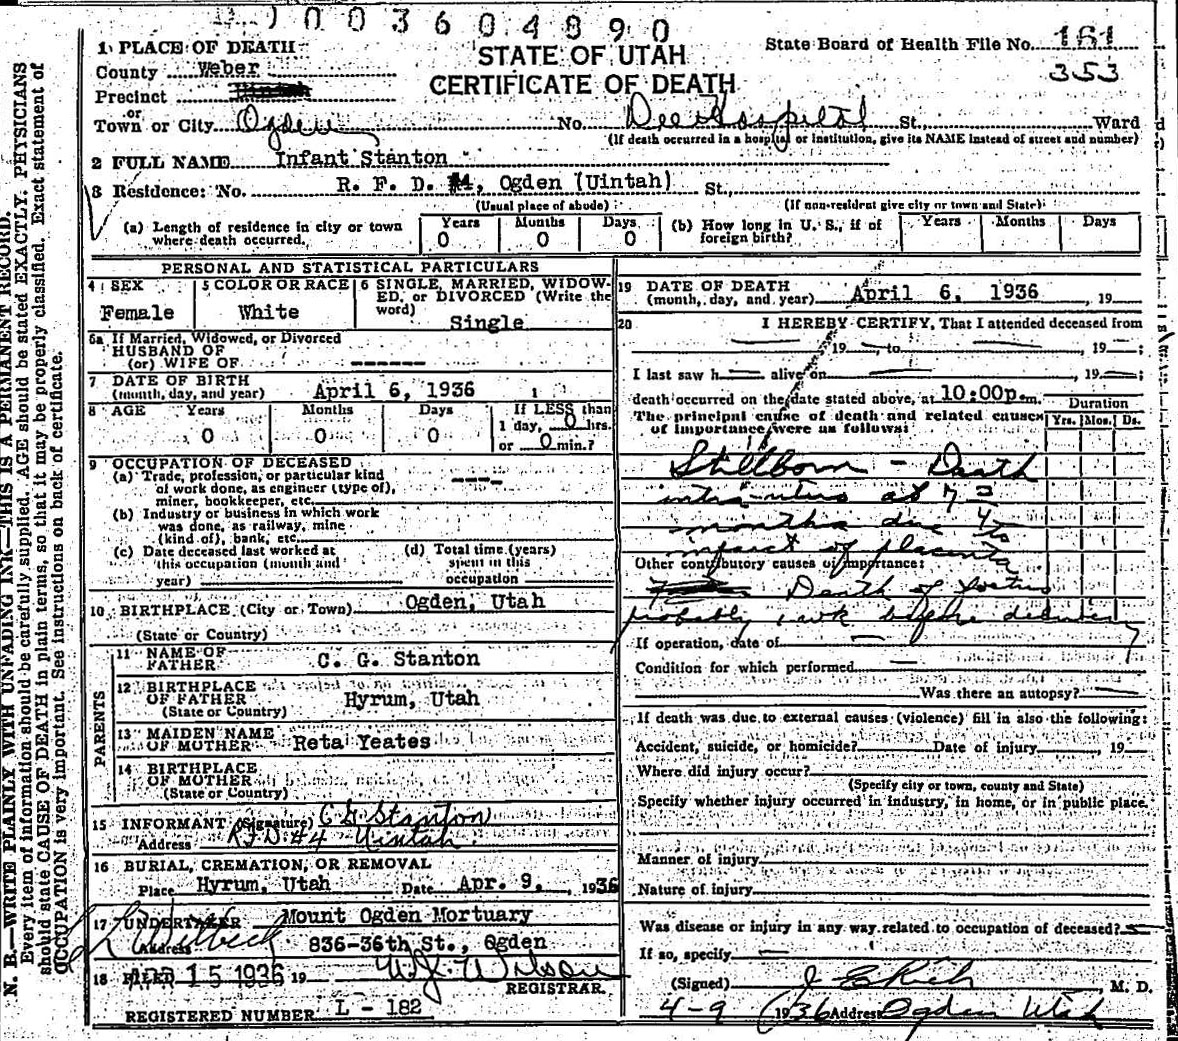 003604890
1 PLACE OF DEATH
STATE OF UTAH
State Board of Health File No. 161
County Weber
CERTIFICATE OF DEATH
353
Precinct Uintah
or
Town or City Ogden No. Dee Hospital St. Ward
(If death occurred in a hospital or institution, give its NAME instead of street and number)
2 FULL NAME Infant Stanton
3 Residence: No. R. F. D. #4, Ogden (Uintah) St.,
(Usual place of abode) (If non-resident give city or town and State)
(a) Length of residence in city or town where death occurred. Years 0 Months 0 Days 0
(b) How long in U. S., if of foreign birth? Years Months Days
PERSONAL AND STATISTICAL PARTICULARS
4 SEX Female
5 COLOR OR RACE White
6 SINGLE, MARRIED, WIDOWED, or DIVORCED (Write the word) Single
6a If Married, Widowed, or Divorced
HUSBAND OF
(or) WIFE OF ------
7 DATE OF BIRTH
(month, day, and year) April 6, 1936
8 AGE Years 0 Months 0 Days 0
If LESS than
1 day, 0 hrs.
or 0 min.?
9 OCCUPATION OF DECEASED
(a) Trade, profession, or particular kind
of work done, as engineer (type of),
miner, bookkeeper, etc. ----
(b) Industry or business in which work
was done, as railway, mine
(kind of), bank, etc.
(c) Date deceased last worked at
this occupation (month and
year)
(d) Total time (years)
spent in this
occupation
10 BIRTHPLACE (City or Town) Ogden, Utah
(State or Country)
PARENTS
11 NAME OF
FATHER C. G. Stanton
12 BIRTHPLACE
OF FATHER Hyrum, Utah
(State or Country)
13 MAIDEN NAME
OF MOTHER Reta Yeates
14 BIRTHPLACE
OF MOTHER
(State or Country)
15 INFORMANT (Signature) C G Stanton
Address R.F.D #4 Uintah
16 BURIAL, CREMATION, OR REMOVAL
Place Hyrum, Utah Date Apr. 9, 1936
17 UNDERTAKER Mount Ogden Mortuary
Address 836-36th St., Ogden
18 FILED APR 15 1936 19 W.J. Wilson
REGISTRAR
REGISTERED NUMBER L - 182
19 DATE OF DEATH
(month, day, and year) April 6, 1936, 19
20 I HEREBY CERTIFY, That I attended deceased from
19 to 19 ;
I last saw h alive on , 19 ;
death occurred on the date stated above, at 10:00p.m.
The principal cause of death and related causes
of importance were as follows:
Duration
Yrs. Mos. Ds.
Stillborn - Death
intra-utero at 7 3/4
months due to
impact of placenta
Other contributory causes of importance:
Death of foetus
probably 1 wk before delivery
If operation, date of
Condition for which performed
Was there an autopsy?
If death was due to external causes (violence) fill in also the following:
Accident, suicide, or homicide? Date of injury , 19
Where did injury occur?
(Specify city or town, county and State)
Specify whether injury occurred in industry, in home, or in public place.
Manner of injury
Nature of injury
Was disease or injury in any way related to occupation of deceased?
If so, specify
(Signed) J E Rich, M. D.
4-9 1936 Address Ogden Utah
N. B.—WRITE PLAINLY WITH UNFADING INK—THIS IS A PERMANENT RECORD.
Every item of information should be carefully supplied. AGE should be stated EXACTLY. PHYSICIANS
should state CAUSE OF DEATH in plain terms, so that it may be properly classified. Exact statement of
OCCUPATION is very important. See instructions on back of certificate.